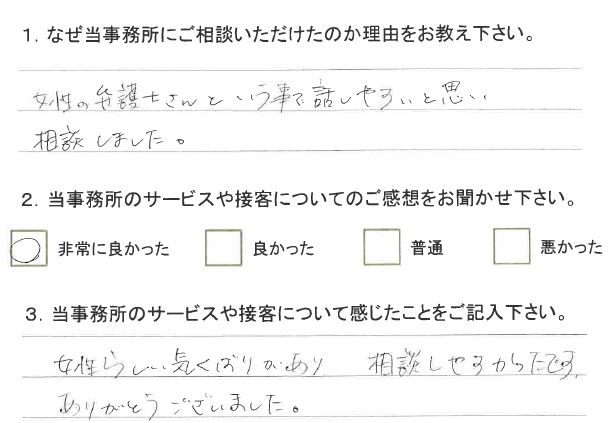 1. なぜ当事務所にご相談いただけたのか理由をお教え下さい。
女性の弁護士さんという事で話しやすいと思い
相談しました。
2. 当事務所のサービスや接客についてのご感想をお聞かせ下さい。
非常に良かった 良かった 普通 悪かった
3. 当事務所のサービスや接客について感じたことをご記入下さい。
女性らしい気くばりがあり 相談しやすかったです。
ありがとうございました。